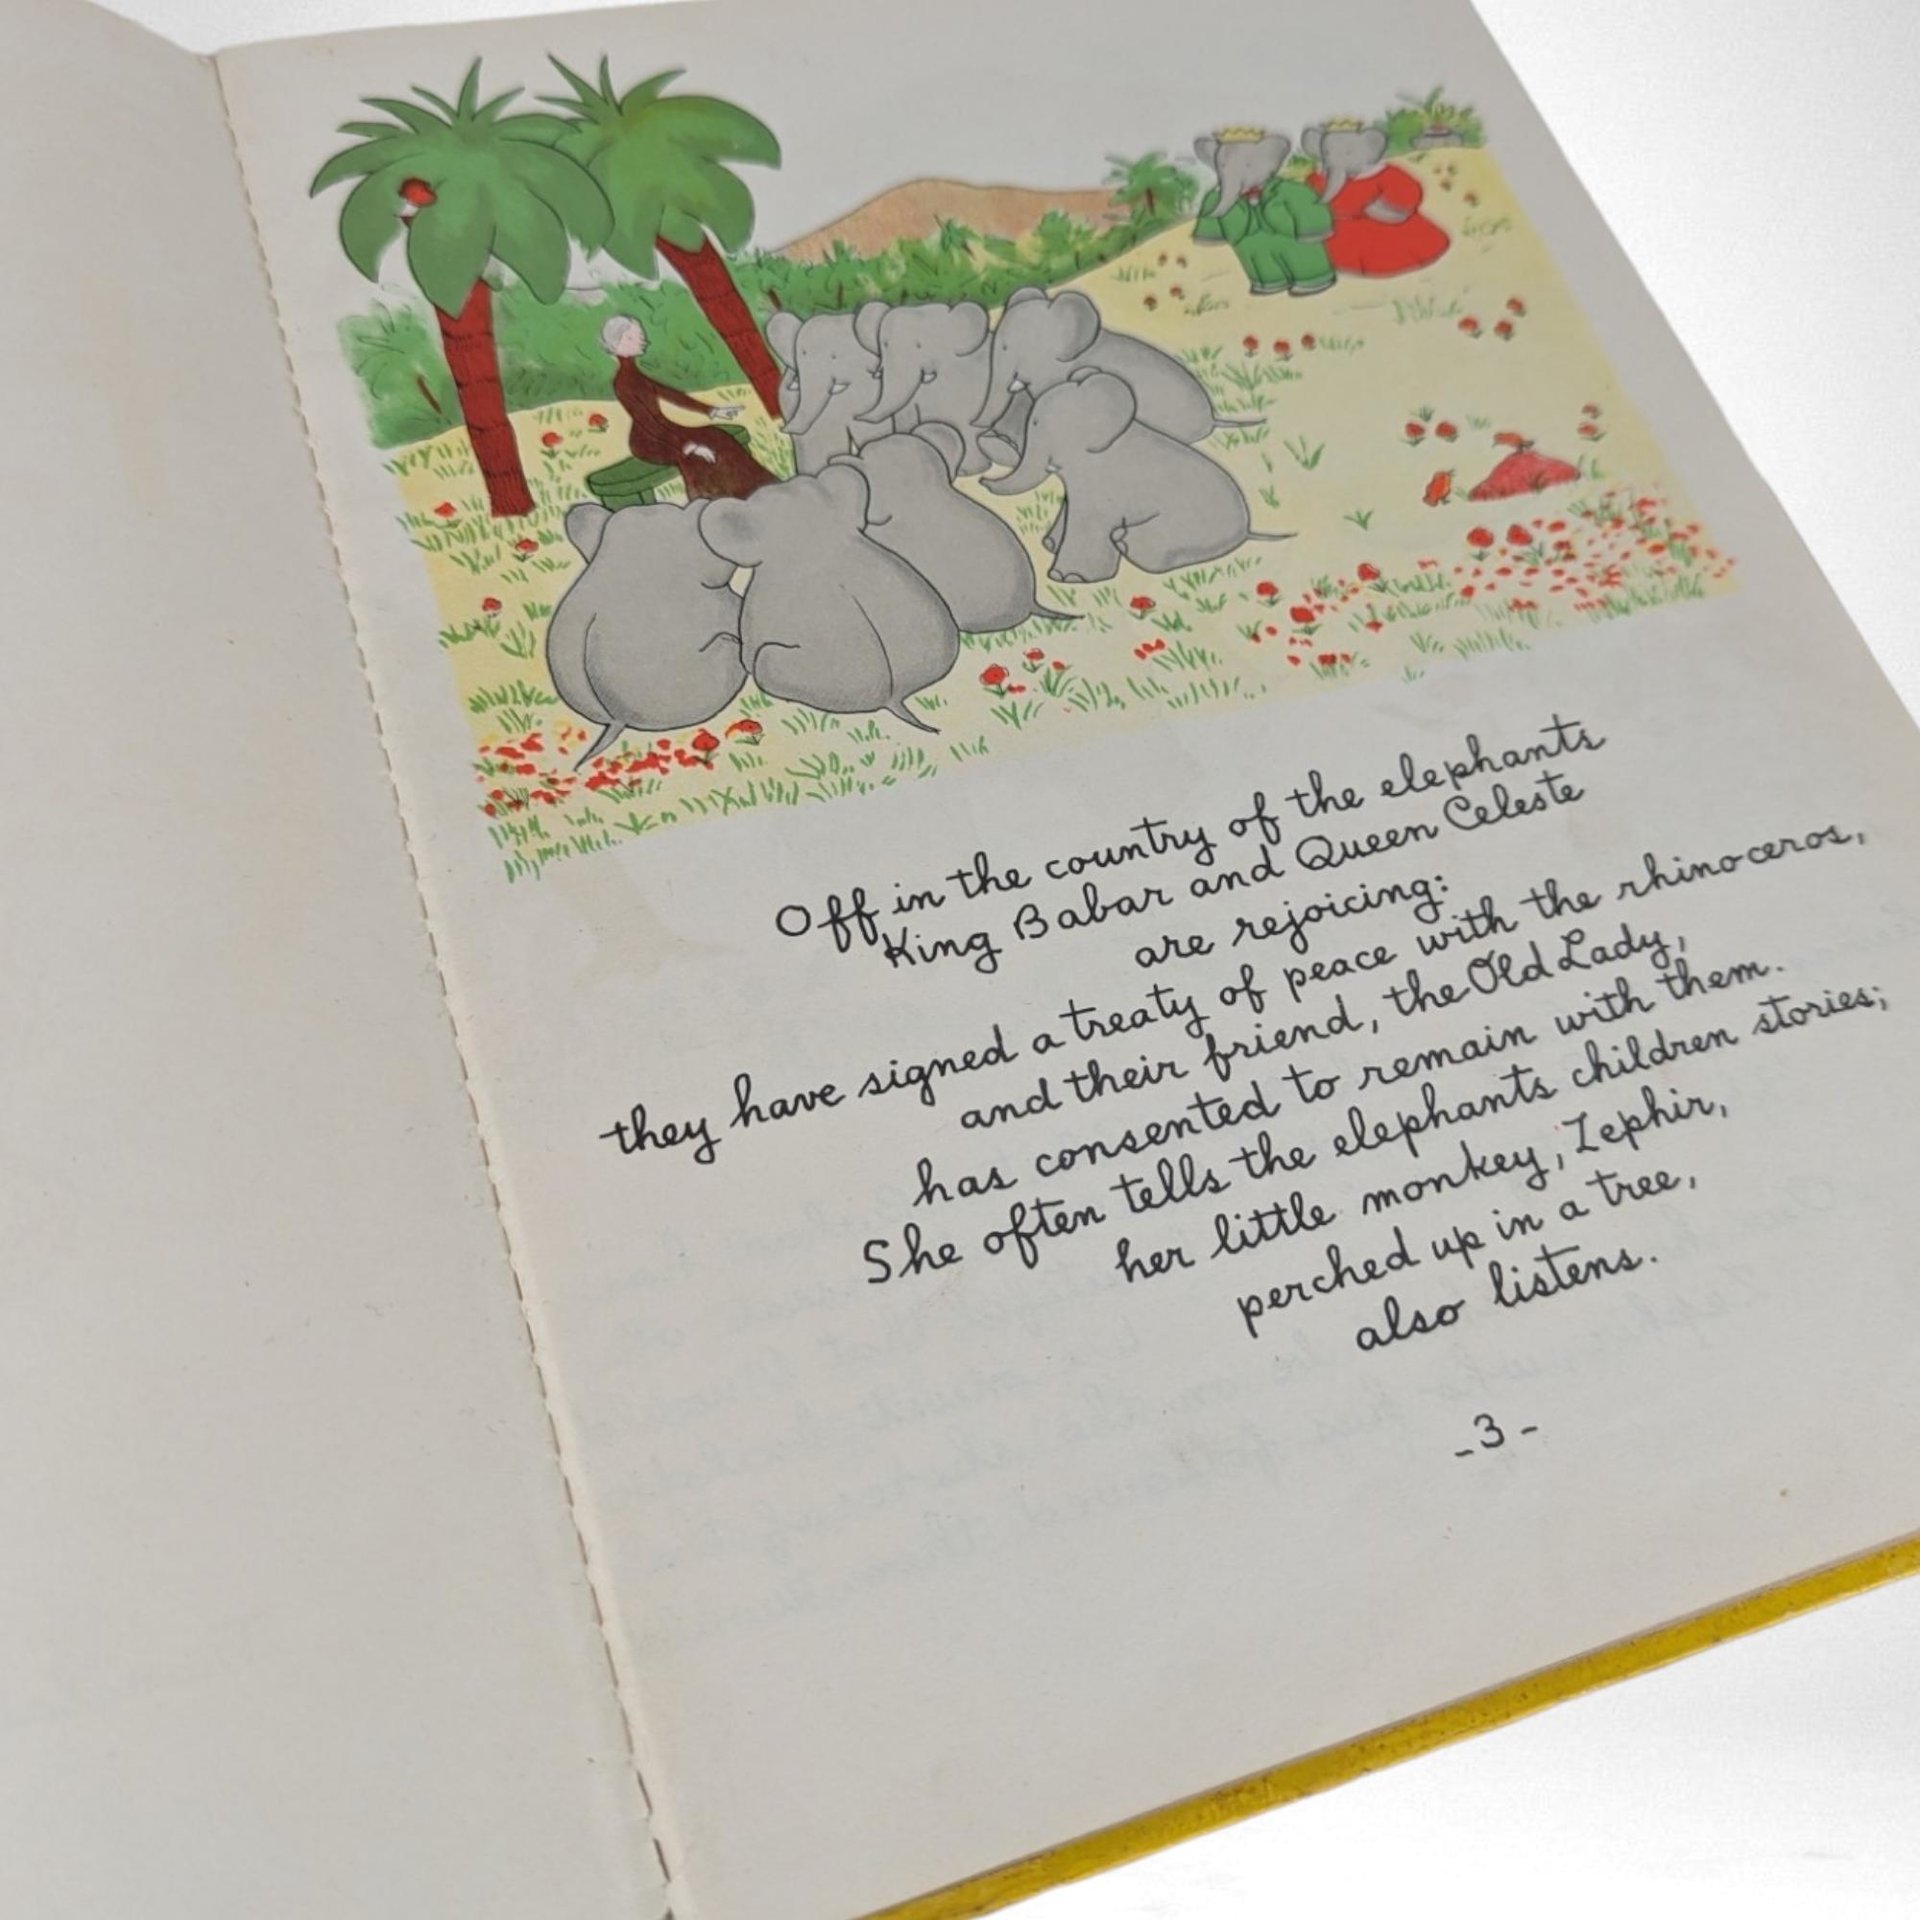 Off in the country of the elephants
King Babar and Queen Celeste
are rejoicing:
they have signed a treaty of peace with the rhinoceros,
and their friend, the Old Lady,
has consented to remain with them.
She often tells the elephants children stories;
her little monkey, Zephir,
perched up in a tree,
also listens.
-3-